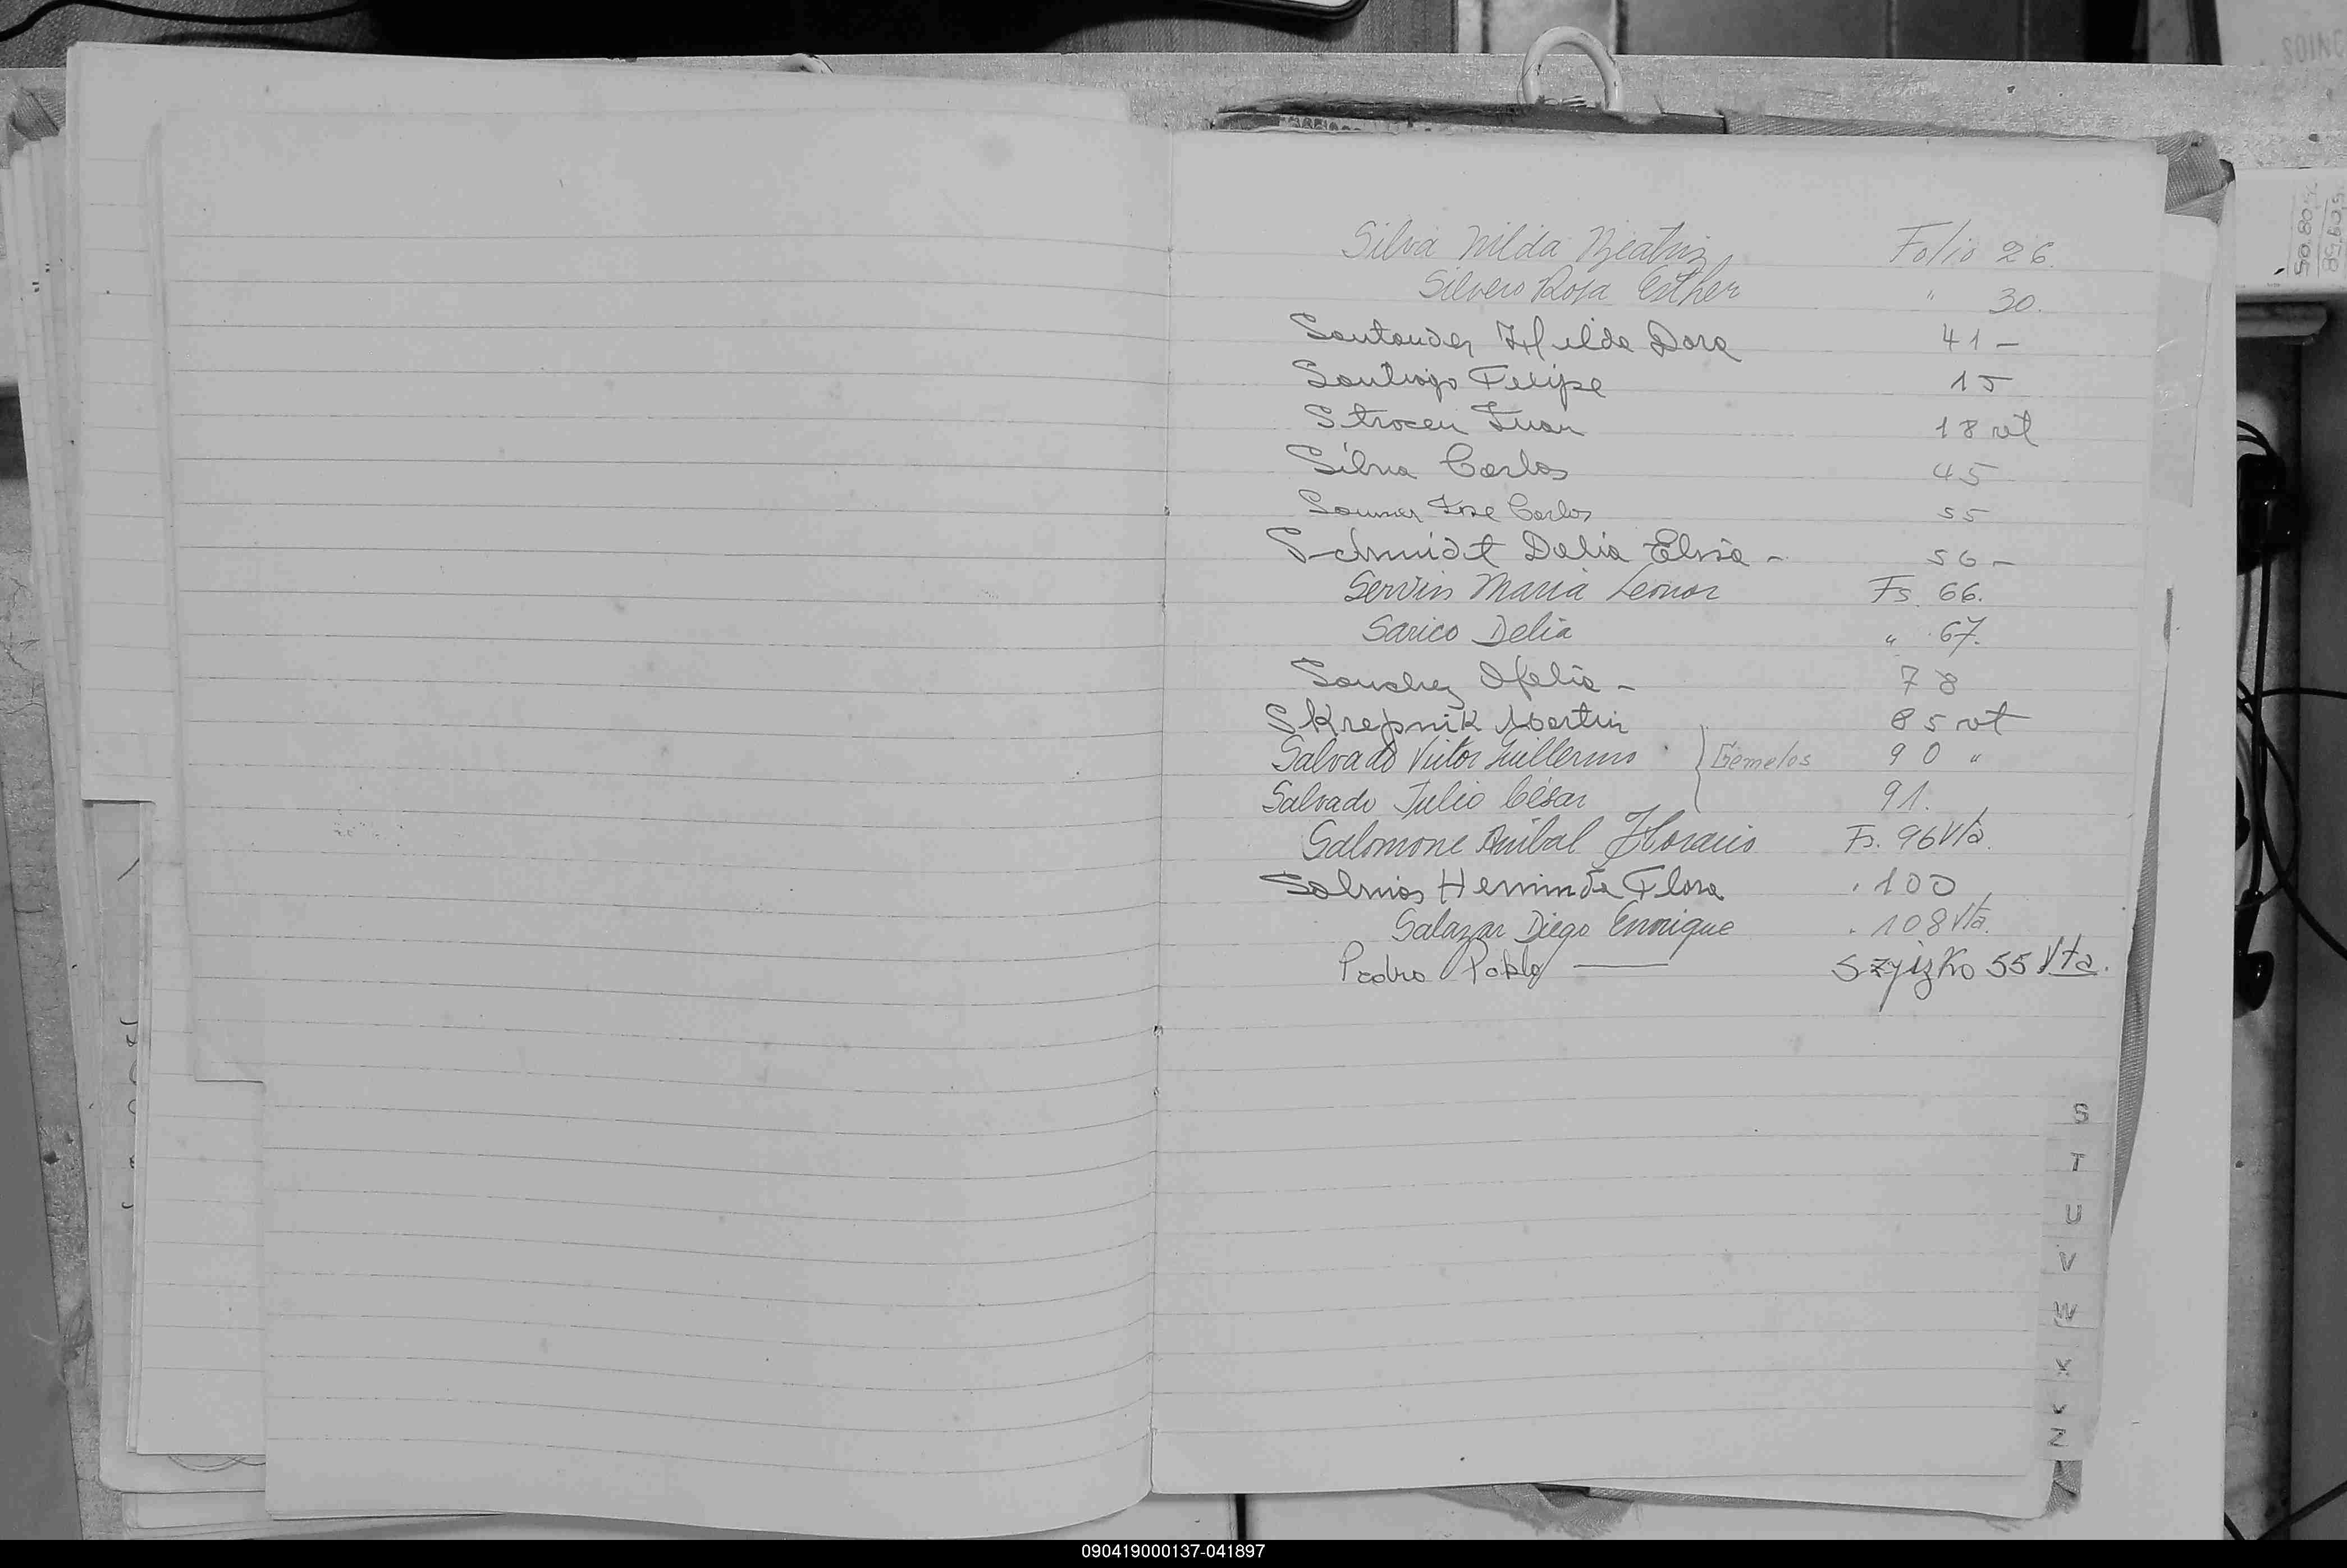 Silva Nilda Beatriz Folio 26.
Silvero Rosa Esther " 30.
Santander Hilda Dora 41 -
Santiago Felipe 15
Strocen Juan 18 vt
Silva Carlos 45
Sommer Jose Carlos 55
Schmidt Delia Elisa - 56 -
Servin Maria Leonor Fs 66.
Sarico Delia " 67.
Sanchez Ofelia - 78
Skrepnik Martin 85 vt
Salvado Victor Guillermo Gemelos 90 "
Salvado Julio César 91.
Salomone Anibal Horacio Fs. 96 Vta.
Herminda Flora . 100
Salazar Diego Enrique . 108 Vta.
Pedro Pablo — Szyizko 55 Vta.
S
T
U
V
W
X
Z
090419000137-041897